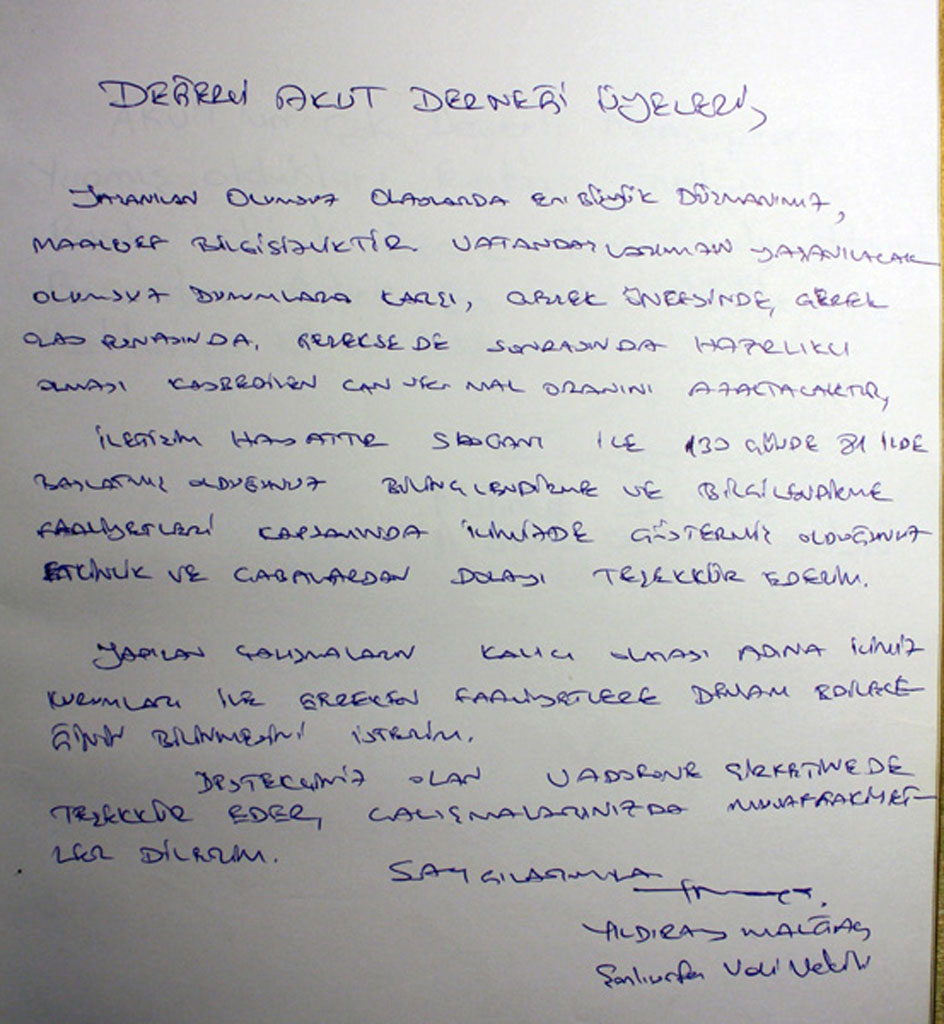 DEĞERLİ AKUT DERNEĞİ ÜYELERİ,
YAŞANILAN OLUMSUZ OLAYLARDA EN BÜYÜK DÜŞMANIMIZ,
MAALESEF BİLGİSİZLİKTİR. VATANDAŞLARIMIZIN YAŞANILACAK
OLUMSUZ DURUMLARA KARŞI, GEREK ÖNCESİNDE, GEREK
OLAY ESNASINDA, GEREKSE DE SONRASINDA HAZIRLIKLI
OLMASI KAYBEDİLEN CAN VE MAL ORANINI AZALTACAKTIR,
İLETİŞİM HAYATTIR SLOGANI İLE 130 GÜNDE 81 İLDE
BAŞLATMIŞ OLDUĞUNUZ BİLİNÇLENDİRME VE BİLGİLENDİRME
FAALİYETLERİ KAPSAMINDA İLİMİZDE GÖSTERMİŞ OLDUĞUNUZ
ETKİNLİK VE ÇABALARDAN DOLAYI TEŞEKKÜR EDERİM.
YAPILAN ÇALIŞMALARIN KALICI OLMASI ADINA İLİMİZ
KURUMLARI İLE GEREKEN FAALİYETLERE DEVAM EDİLECE-
ĞİNİN BİLİNMESİNİ İSTERİM.
DESTEKÇİNİZ OLAN VADOFONE ŞİRKETİNEDE
TEŞEKKÜR EDER, ÇALIŞMALARINIZDA MUVAFFAKİYET-
LER DİLERİM.
SAYGILARIMLA
YILDIRAY MALĞAÇ
Şanlıurfa Vali Vekili